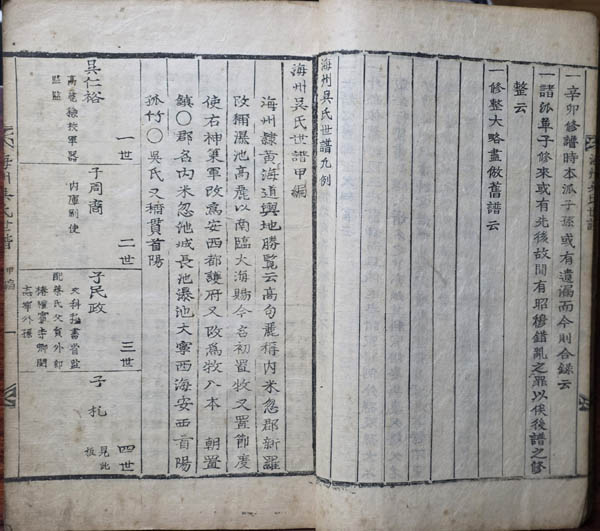 一辛卯修譜時本派子孫或有遺漏而今則合錄云
一諸派單子修來或有先後故間有昭穆錯亂之罪以俟後譜之修
整云
一修整大略盡倣舊譜云
海州吳氏世譜凡例
海州吳氏世譜甲編
海州隸黃海道輿地勝覽云高句麗稱內米忽郡新羅
改稱瀑池高麗以南臨大海賜今名初置牧又置節度
使右神策軍改爲安西都護府又改爲牧入本 朝置
鎮○郡名內米忽池城長池瀑池大寧西海安西首陽
孤竹○吳氏又稱貫首陽
一世
吳仁裕
高麗檢校軍器
監監
二世
子周商
內庫副使
三世
子民政
文科秘書省監
配蔡氏父員外郞
椿禮賓寺卿閔
志寧外孫
四世
子札
見北
板
海州吳氏世譜
甲編
一